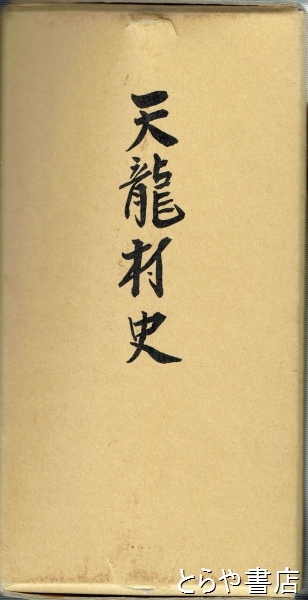 天龍村史
とらや書店